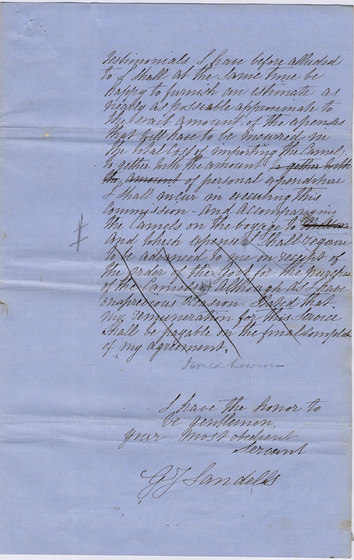 testimonials I have before alluded
to I shall at the same time be
happy to furnish an estimate as
nearly as possiable approximate to
the exact amount of the expenses
that will have to be incurred in
the total cost of importing the Camels
to gether with the amount to gether with
the amount of personal expenditure
I shall incur in executing this
Commission - And accompanying
the Camels on the voyage to
And which expenses I shall require
to be advanced to me on receipt of
the order of the for the purchase
of the Camels although as I have
on a previous occasion stated that
my remuneration for this service
shall be payable on the final completion
of my agreement.
I have the honor to
be gentlemen
your most obedient
Servant
G J Landells